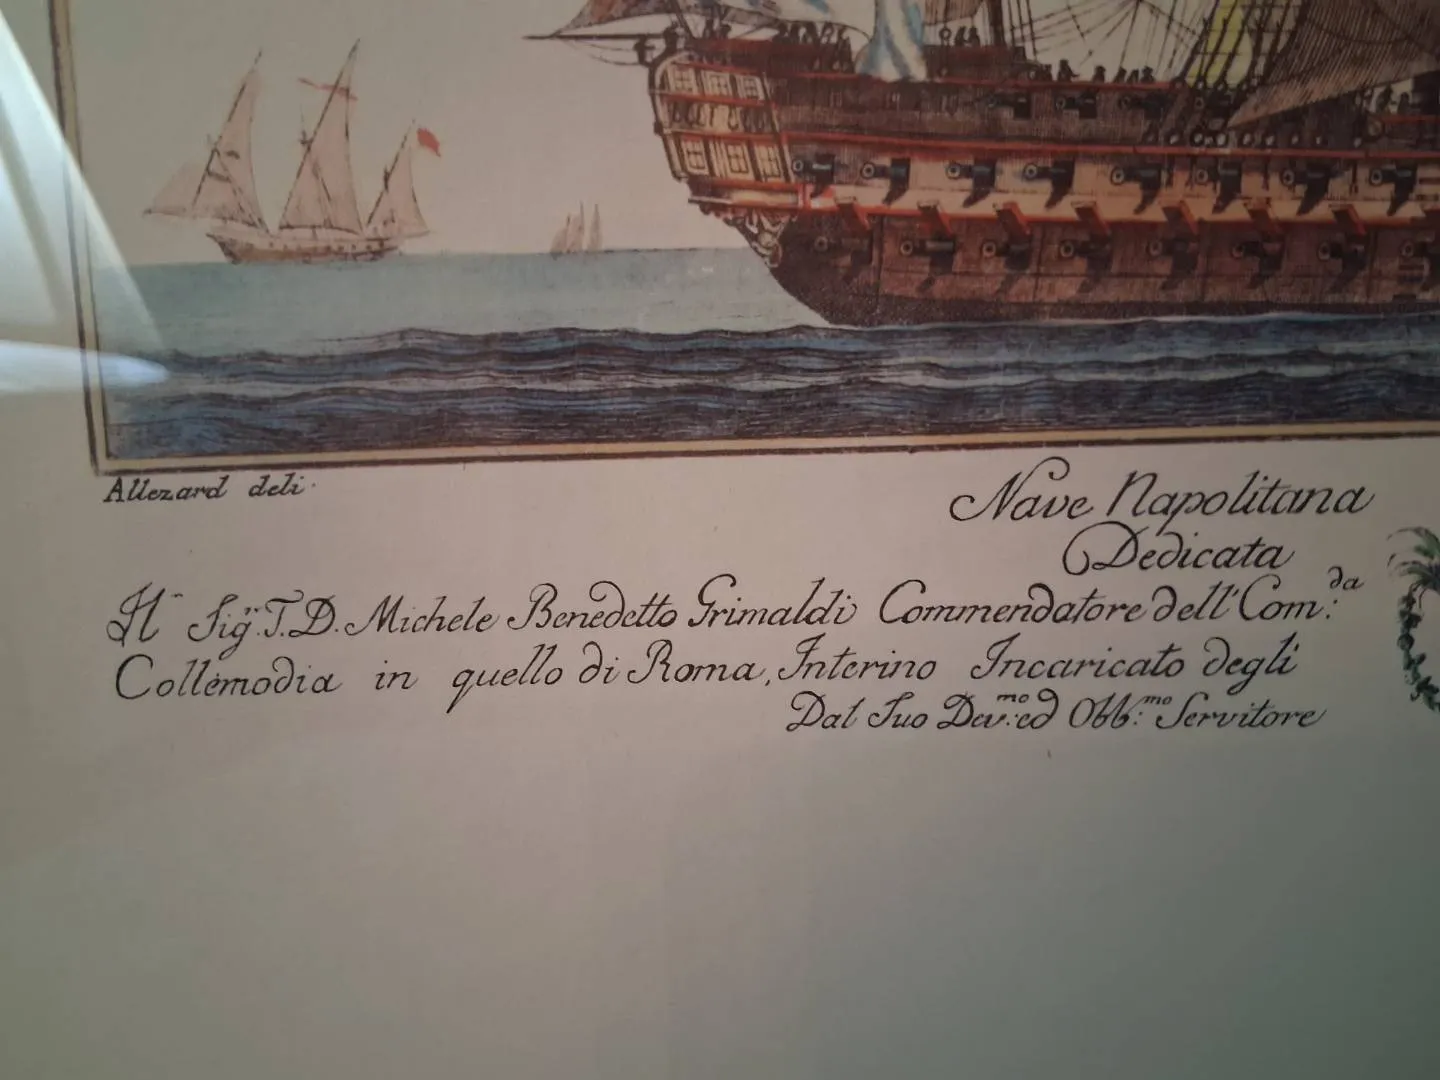 Allezard deli.
Nave Napolitana
Dedicata
Il Sig.r F.D. Michele Benedetto Grimaldi Commendatore dell'Com:da
Collemodia in quello di Roma, Interino Incaricato degli
Dal Suo Dev:mo ed Obb:mo Servitore